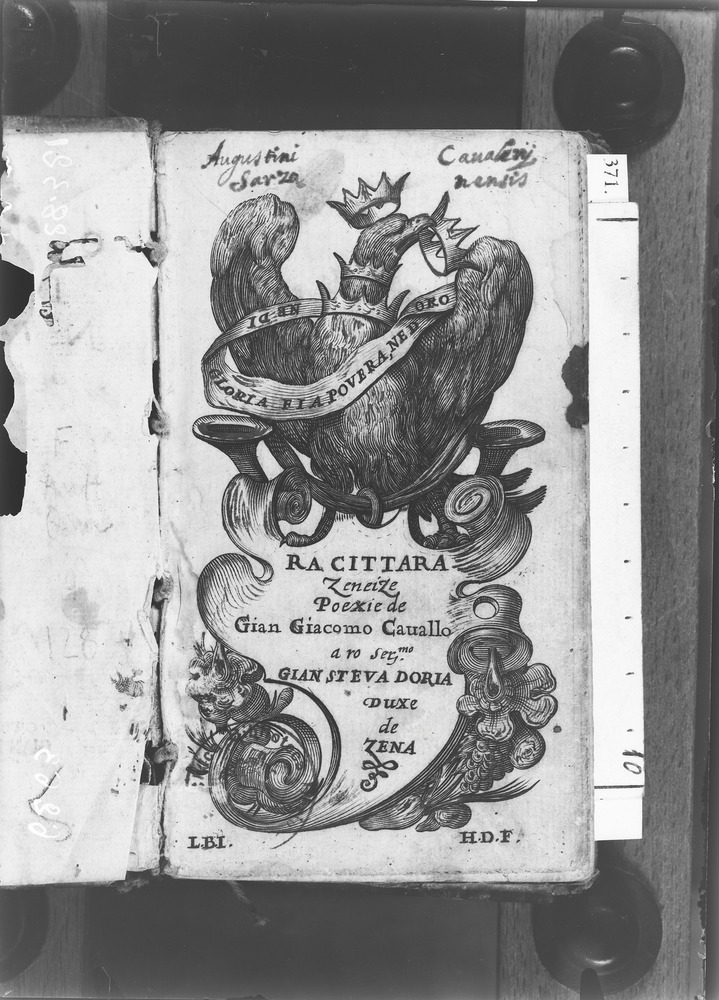 Augustini Caualerij
Sarza nensis
371.
NE DI
GLORIA FIA POVERA, NE D ORO
RA CITTARA
Zeneize
Poexie de
Gian Giacomo Cauallo
a ro Ser.mo
GIAN STEVA DORIA
DUXE
de
ZENA
10
L.B.I. H.D.F.